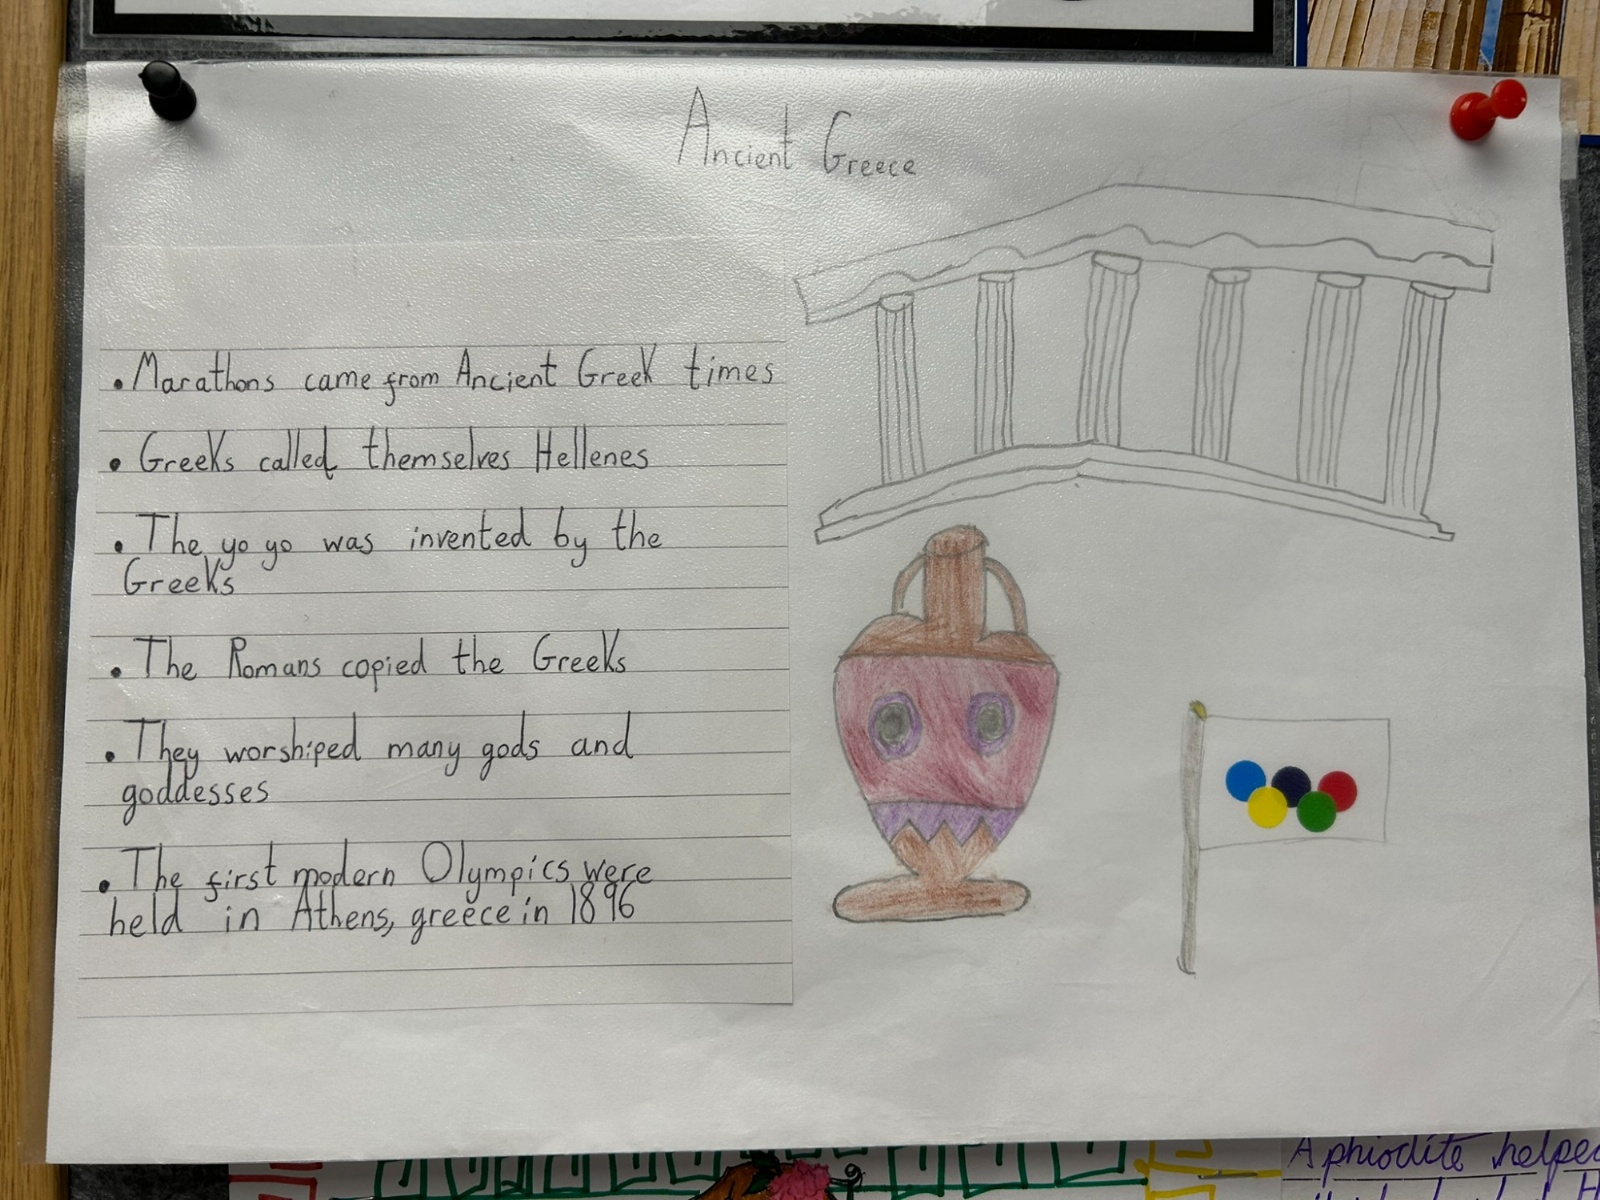 Ancient Greece
• Marathons came from Ancient Greek times
• Greeks called themselves Hellenes
• The yo yo was invented by the
Greeks
• The Romans copied the Greeks
• They worshiped many gods and
goddesses
• The first modern Olympics were
held in Athens, greece in 1896
Aphiodite helped